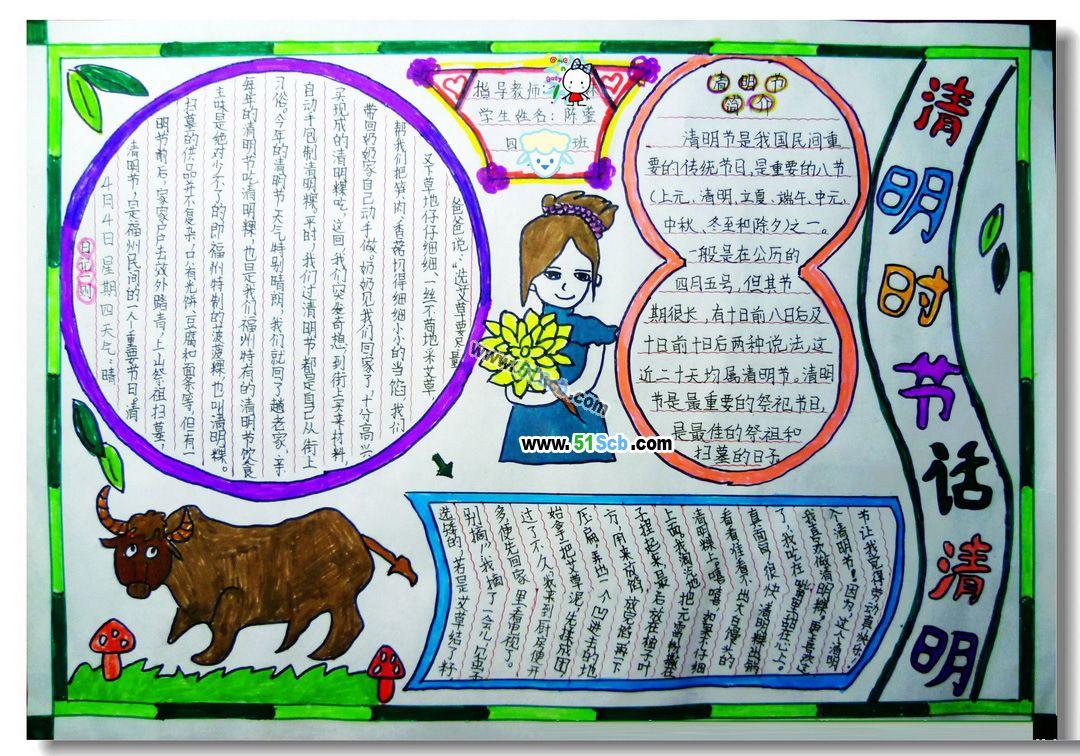 清明时节话清明
指导教师：
学生姓名：陈雯
四 班
日记一则
4月4日 星期四 天气：晴
清明节，是福州民间的一个重要节日。清
明节前后，家家户户去郊外踏青，上山祭祖扫墓，
扫墓的供品并不复杂，只有光饼、豆腐和面条等，但有一
主味是绝对少不了的即福州特制的菠菠粿也叫清明粿。
每年的清明节吃清明粿，也是我们福州特有的清明节饮食
习俗。今年的清明节天气特别晴朗，我们就回了趟老家，亲
自动手包制清明粿。平时，我们过清明节都是自己从街上
买现成的清明粿吃，这回，我们突发奇想到街上买来材料，
带回奶奶家自己动手做。奶奶见我们回家了，十分高兴
帮我们把笋肉、香菇切得细细小小的当馅，我们
又下草地仔仔细细、一丝不苟地采艾草
爸爸说："选艾草要尽量
选矮的，若是艾草结了籽
别摘。"我摘了一会儿，见虫子
多便先回家里看电视了。
过了不久，我来到厨房便开
始拿了把艾草泥，先揉成团
压扁，弄出一个凹进去的地
方，用来放馅，放完馅再一下
子捏起来，最后放在粽子叶
上面。我淘气地把元宵粉揉在
清明粿 嘻嘻，如果不仔细
看看 看不出大白馒头的
真面目。很快，清明粿出锅
了，我吃在嘴里甜在心上，
我喜欢做清明粿，更喜欢
个清明节！因为，这个清明
节让我觉得劳动真快乐！
清明节
简介
清明节是我国民间重
要的传统节日，是重要的八节
（上元、清明、立夏、端午、中元、
中秋、冬至和除夕）之一。
一般是在公历的
四月五号，但其节
期很长，有十日前八日后及
十日前十日后两种说法，这
近二十天均属清明节。清明
节是最重要的祭祀节日，
是最佳的祭祖和
扫墓的日子
www.51Scb.com